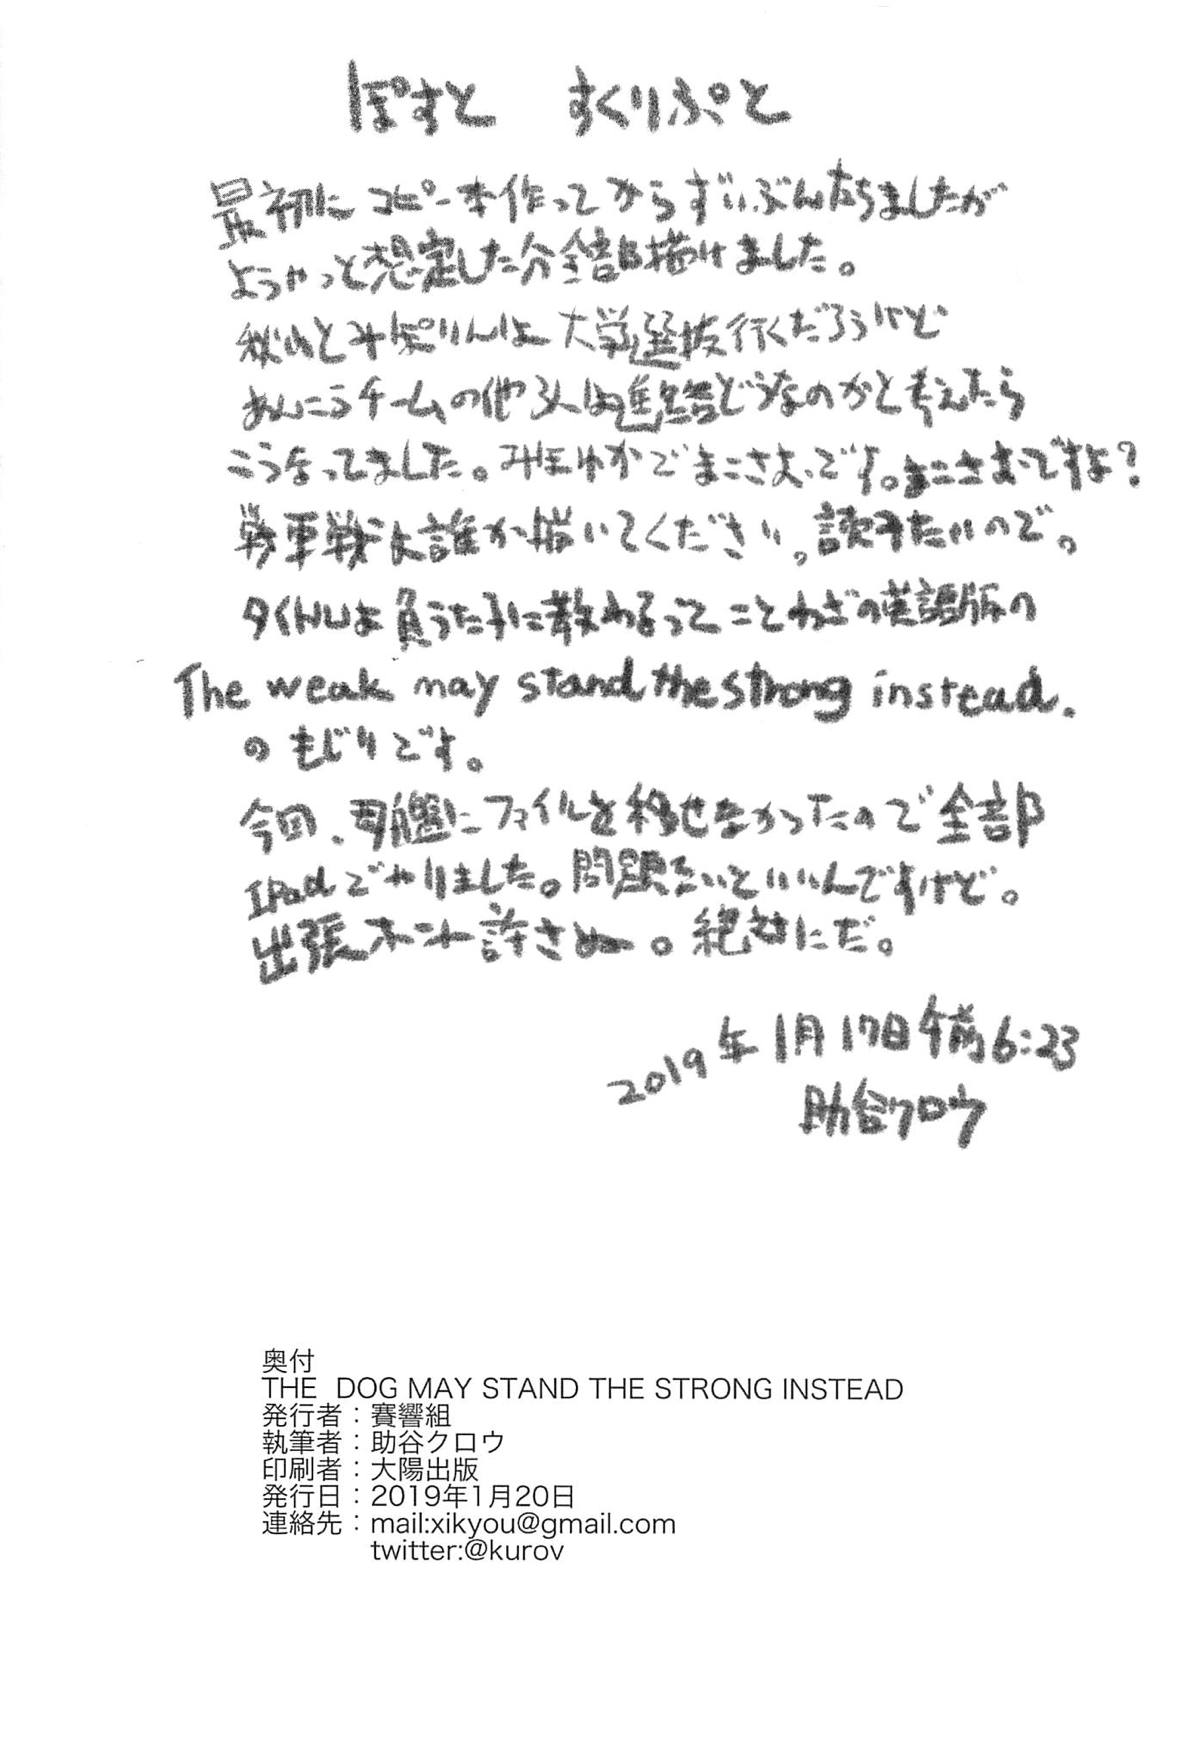 ぽすと すくりぷと
最初にコピー本作ってからずいぶんたちましたが
ようやっと想定した分全部描けました。
秋山とみぽりんは大学選抜行くだろうけど
あんこうチームの他3人は進路どうなのかと考えたら
こうなってました。みほゆかでまこさおです。まこさおですよ?
戦車戦は誰か描いてください。読みたいので。
タイトルは負うた子に教わるってことわざの英語版の
The weak may stand the strong instead.
のもじりです。
今回、母艦にファイルを移せなかったので全部
IPadでやりました。問題ないといいんですけど。
出張ホント許さぬー。絶対にだ。
2019年1月17日午前6:23
助谷クロウ
奥付
THE DOG MAY STAND THE STRONG INSTEAD
発行者：賽響組
執筆者：助谷クロウ
印刷者：大陽出版
発行日：2019年1月20日
連絡先：mail:xikyou@gmail.com
twitter:@kurov